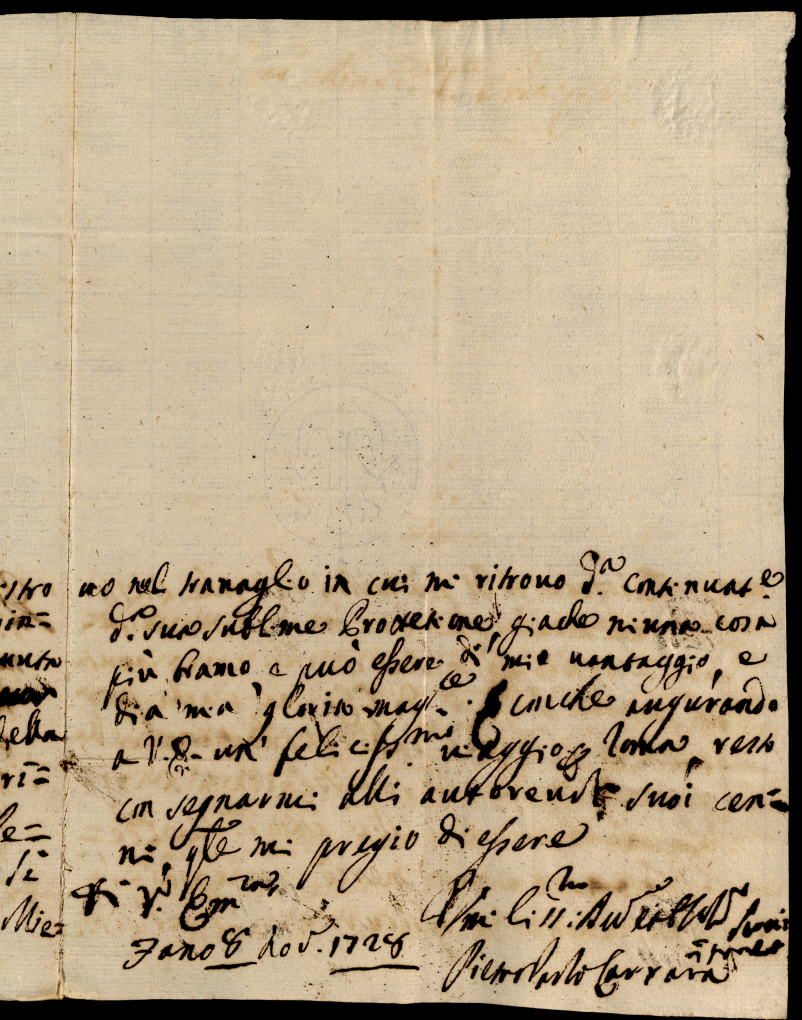 stro
in=
nuta
della
ri=
le=
se
Mie=
uo nel trauaglio in cui mi ritrouo d.ª continuat.e
d.ª sua sublime Protetione, giache niuna cosa
più bramo e può essere di mio uantaggio, e
di a mia gloria magre. conche augurando
a V. E. un' felicissmo uiaggio Roma, resto
con segnarmi alli autoreuoli suoi cen=
ni, qle mi pregio di essere
Di V. Emza
Fano 8 Nov. 1728
Pietro Paolo Carrara